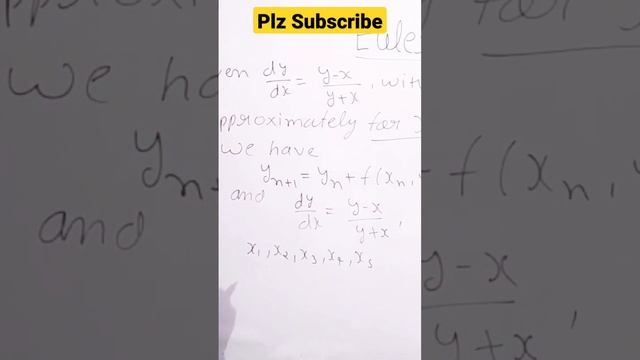 Plz Subscribe
Eule
en dy/dx = y-x/y+x, wit
pproximately for
we have
y_{n+1} = y_n + f(x_n,
and dy/dx = y-x/y+x,
x_1, x_2, x_3, x_4, x_5